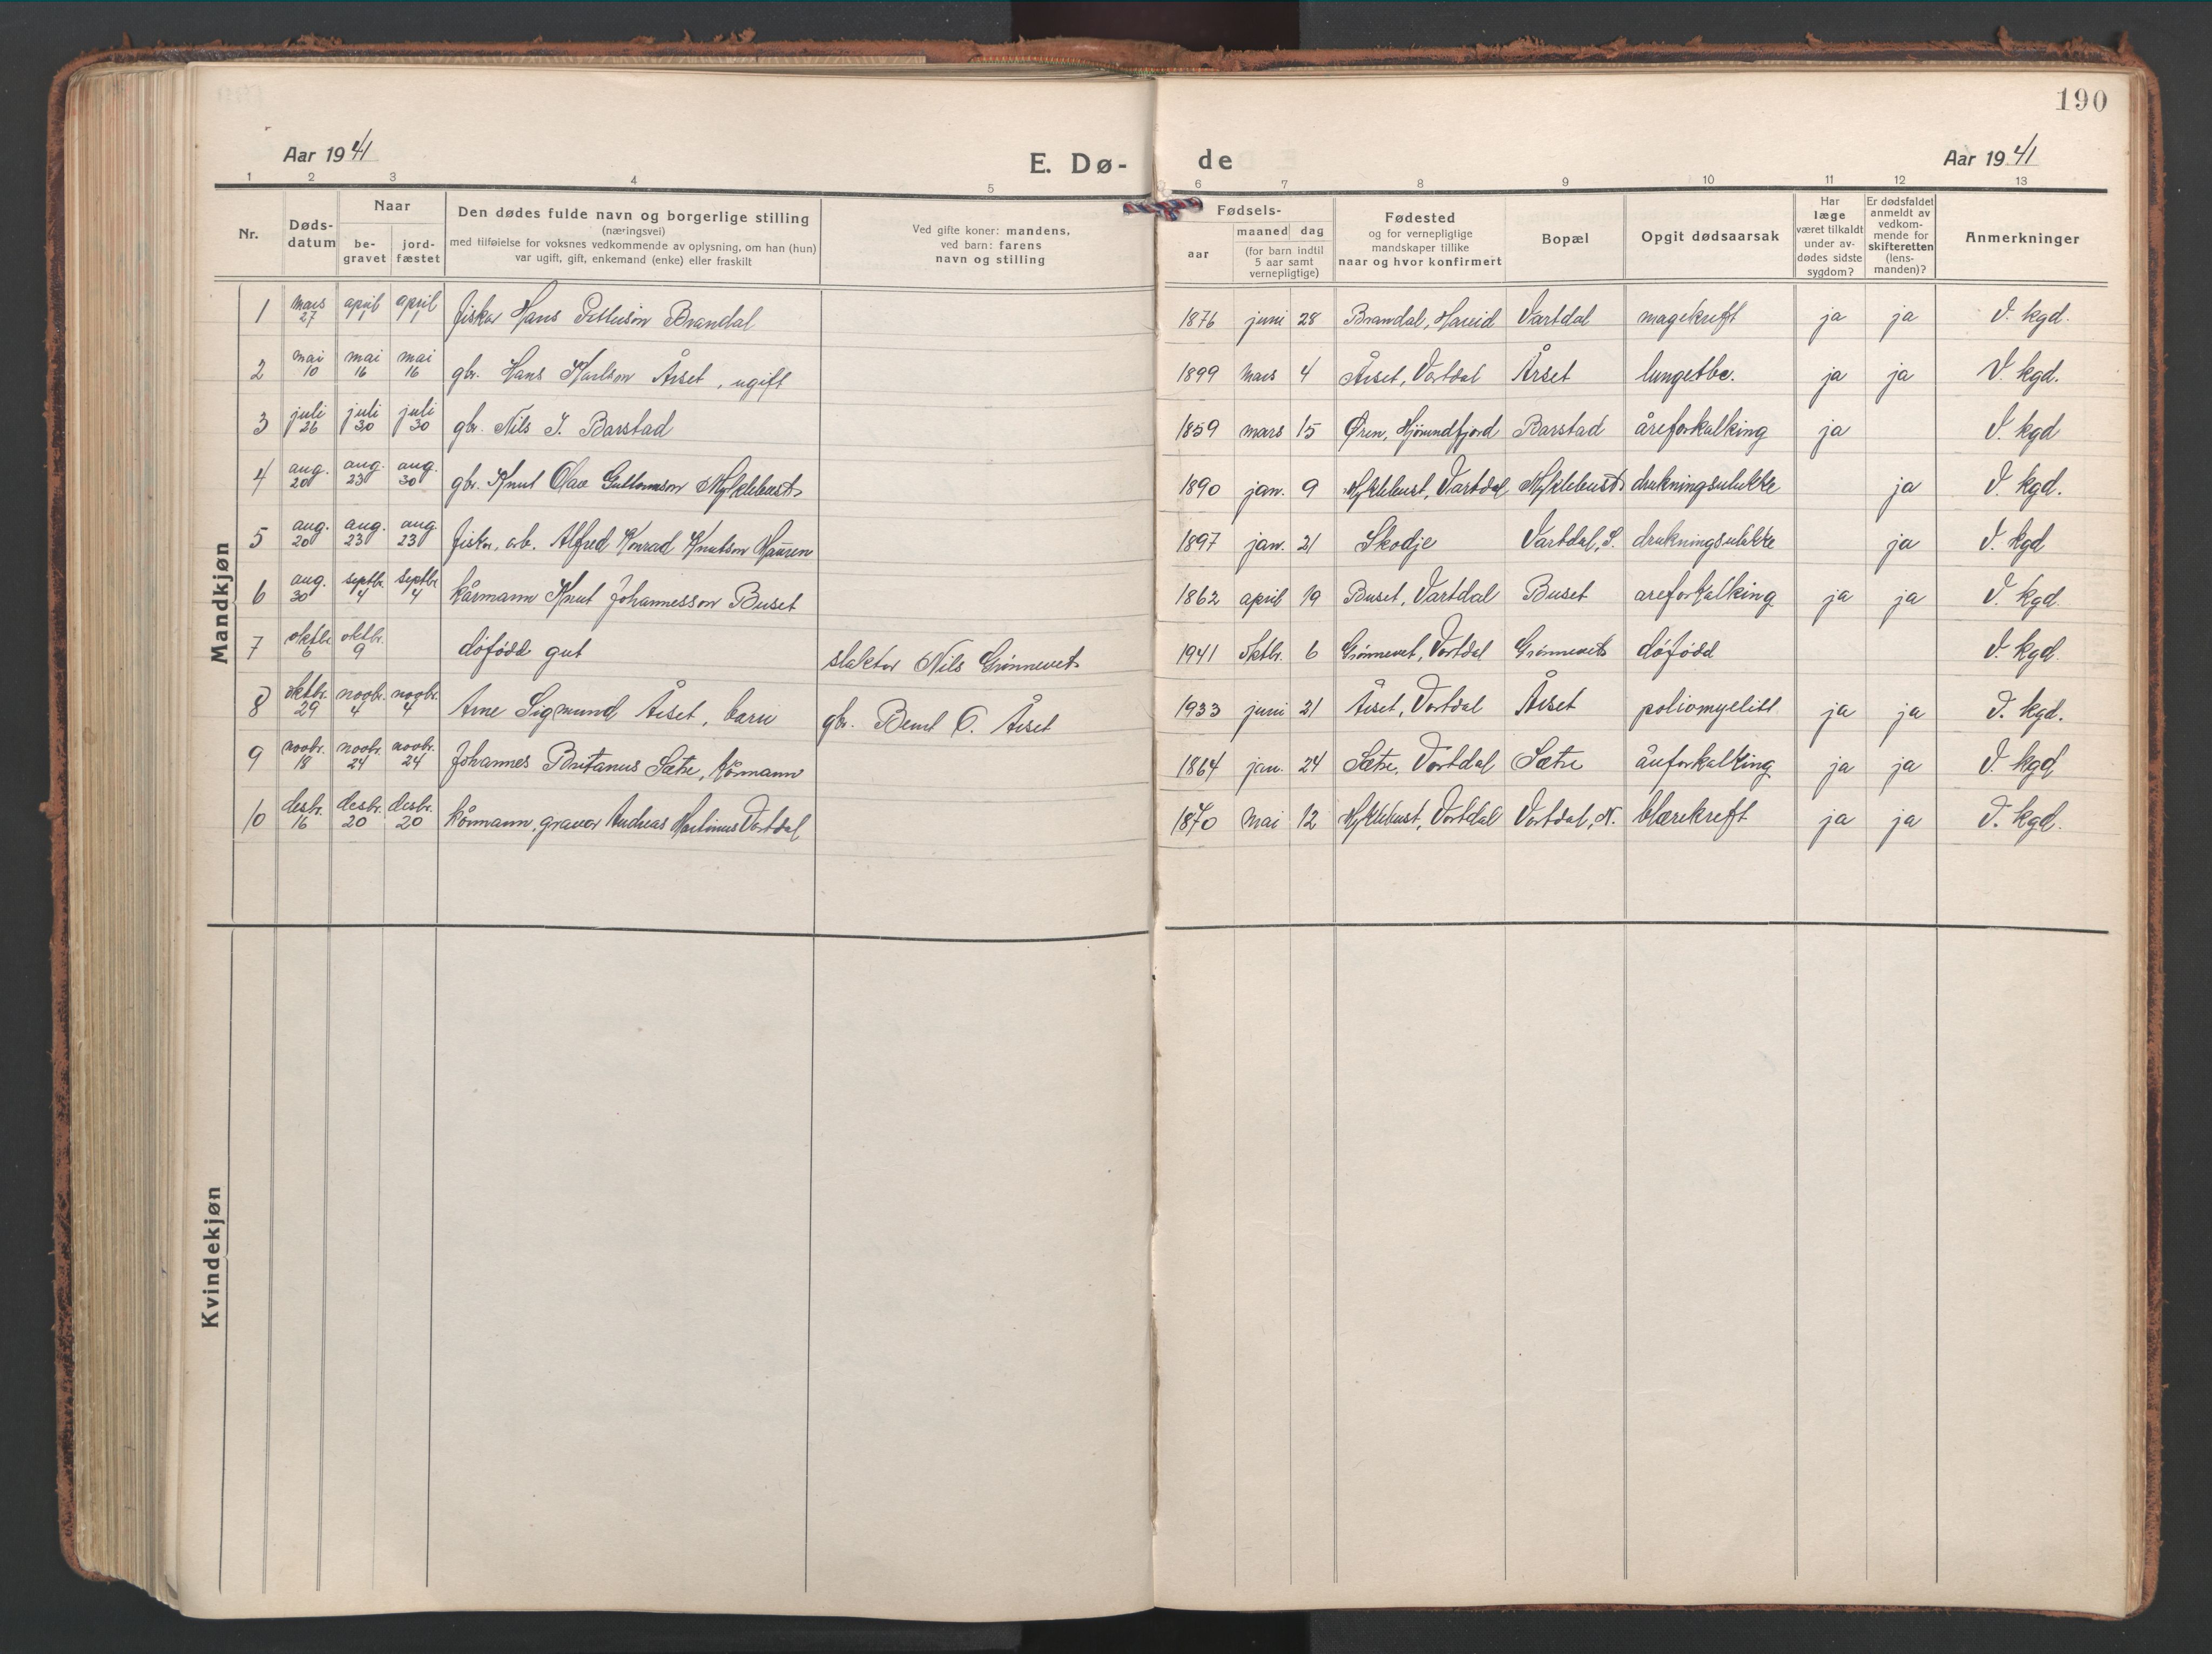 190
Aar 1941 E. Dø- de Aar 1941
1 2 3 4 5 6 7 8 9 10 11 12 13
Nr.
Døds-
datum
Naar
be-
gravet
jord-
fæstet
Den dødes fulde navn og borgerlige stilling
(næringsvei)
med tilføielse for voksnes vedkommende av oplysning, om han (hun)
var ugift, gift, enkemand (enke) eller fraskilt
Ved gifte koner: mandens,
ved barn: farens
navn og stilling
Fødsels-
aar
maaned dag
(for barn indtil
5 aar samt
vernepligtige)
Fødested
og for vernepligtige
mandskaper tillike
naar og hvor konfirmert
Bopæl
Opgit dødsaarsak
Har
læge
været tilkaldt
under av-
dødes sidste
sygdom?
Er dødsfaldet
anmeldt av
vedkom-
mende for
skifteretten
(lens-
manden)?
Anmerkninger
Mandkjøn
1 mars 27 april 1 april 1 fisker Hans Brandal 1876 juni 28 Brandal, Hareid Vartdal magekreft ja ja V. kgd.
2 mai 10 mai 16 mai 16 gbr. Hans Karlson Årset, ugift 1899 mars 4 Årset, Vartdal Årset lungetbc. ja ja V. kgd.
3 juli 26 juli 30 juli 30 gbr. Nils J. Barstad 1859 mars 15 Øren, Hjörundfjord Barstad åreforkalking ja V. kgd
4 aug. 20 aug. 23 aug. 30 gbr. Knut Olav Guttormson Myklebust 1890 jan. 9 Myklebust, Vartdal Myklebust drukningsulukke ja V. kgd.
5 aug. 20 aug. 23 aug. 23 fisker, arb. Alfred Konrad Knutson Mauren 1897 jan. 21 Skodje Vartdal, S. drukningsulukke ja V. kgd
6 aug. 30 septbr 4 septbr 4 kårmann Knut Johannesson Buset 1862 april 19 Buset, Vartdal Buset areforkalking ja ja V. kgd.
7 oktbr 6 oktbr. 9 döfödd gut slaktar Nils Grönnevet 1941 oktbr. 6 Grönnevet, Vartdal Grönnevet döfödd V. kgd.
8 oktbr. 29 novbr. 4 novbr. 4 Arne Sigmund Årset, barn gbr. Bernt O. Årset 1933 juni 21 Årset, Vartdal Årset poliomyelitt ja ja V. kgd.
9 novbr. 18 novbr. 24 novbr. 24 Johannes Britanus Sætre, kårmann 1864 jan. 24 Sætre, Vartdal Sætre åreforkalking ja ja V. kgd
10 desbr. 16 desbr. 20 desbr. 20 kårmann, gravar Andreas Martinus Vartdal 1870 mai 12 Myklebust, Vartdal Vartdal, N. blærekreft ja ja V. kgd.
Kvindekjøn